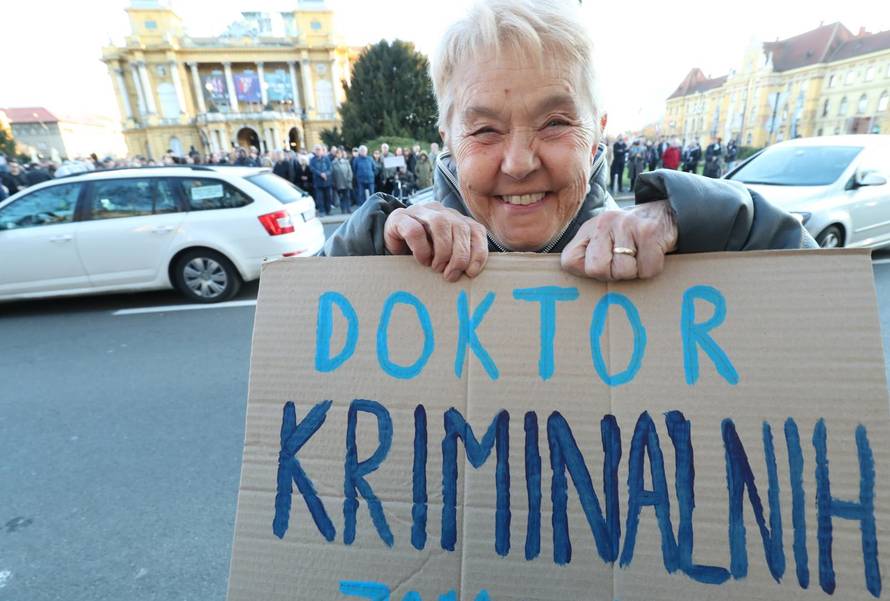 DOKTOR
KRIMINALNIH